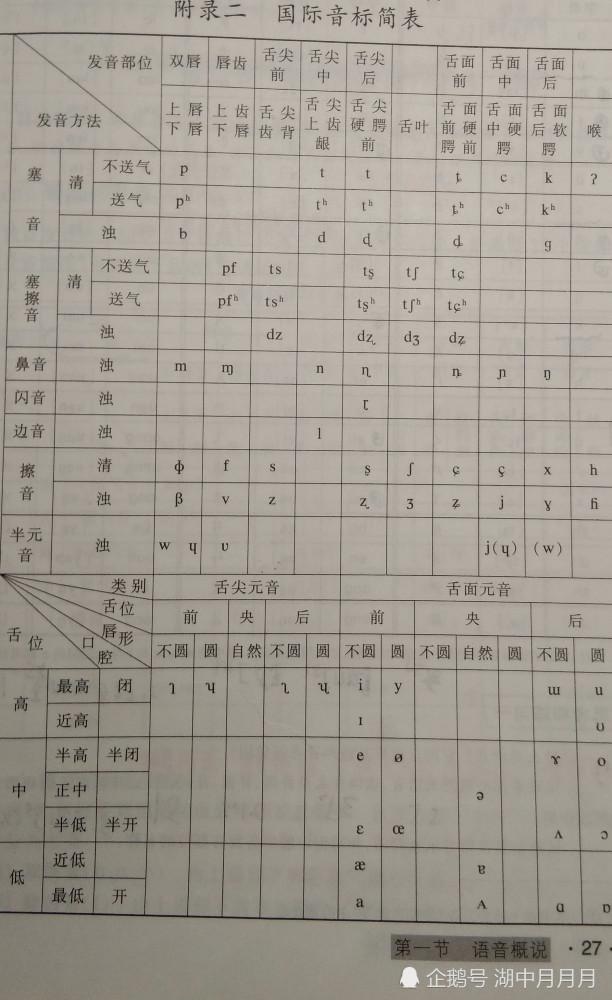 附录二 国际音标简表
发音部位 双唇 唇齿 舌尖前 舌尖中 舌尖后 舌面前 舌面中 舌面后
发音方法 上唇下唇 上齿下唇 舌尖齿背 舌尖上齿龈 舌尖硬腭前 舌叶 舌面前硬腭前 舌面中硬腭 舌面后软腭 喉
塞音 清 不送气 p t ʈ ȶ c k ʔ
送气 pʰ tʰ ʈʰ ȶʰ cʰ kʰ
浊 b d ɖ ȡ g
塞擦音 清 不送气 pf ts tʂ tʃ tɕ
送气 pfʰ tsʰ tʂʰ tʃʰ tɕʰ
浊 dz dʐ dʒ dʑ
鼻音 浊 m ɱ n ɳ ȵ ɲ ŋ
闪音 浊 ɽ
边音 浊 l
擦音 清 ɸ f s ʂ ʃ ɕ ç x h
浊 β v z ʐ ʒ ʑ j ɣ ɦ
半元音 浊 w ɥ ʋ j(ɥ) (w)
类别 舌尖元音 舌面元音
舌位 前 央 后 前 央 后
舌位 口腔 唇形 不圆 圆 自然 不圆 圆 不圆 圆 不圆 自然 圆 不圆 圆
高 最高 闭 ɿ ʮ ʅ ʯ i y ɯ u
近高 ɪ ʊ
中 半高 半闭 e ø ɤ o
正中 ə
半低 半开 ɛ œ ʌ ɔ
低 近低 æ ɐ
最低 开 a ᴀ ɑ ɒ
第一节 语音概说 ·27·
企鹅号 湖中月月月